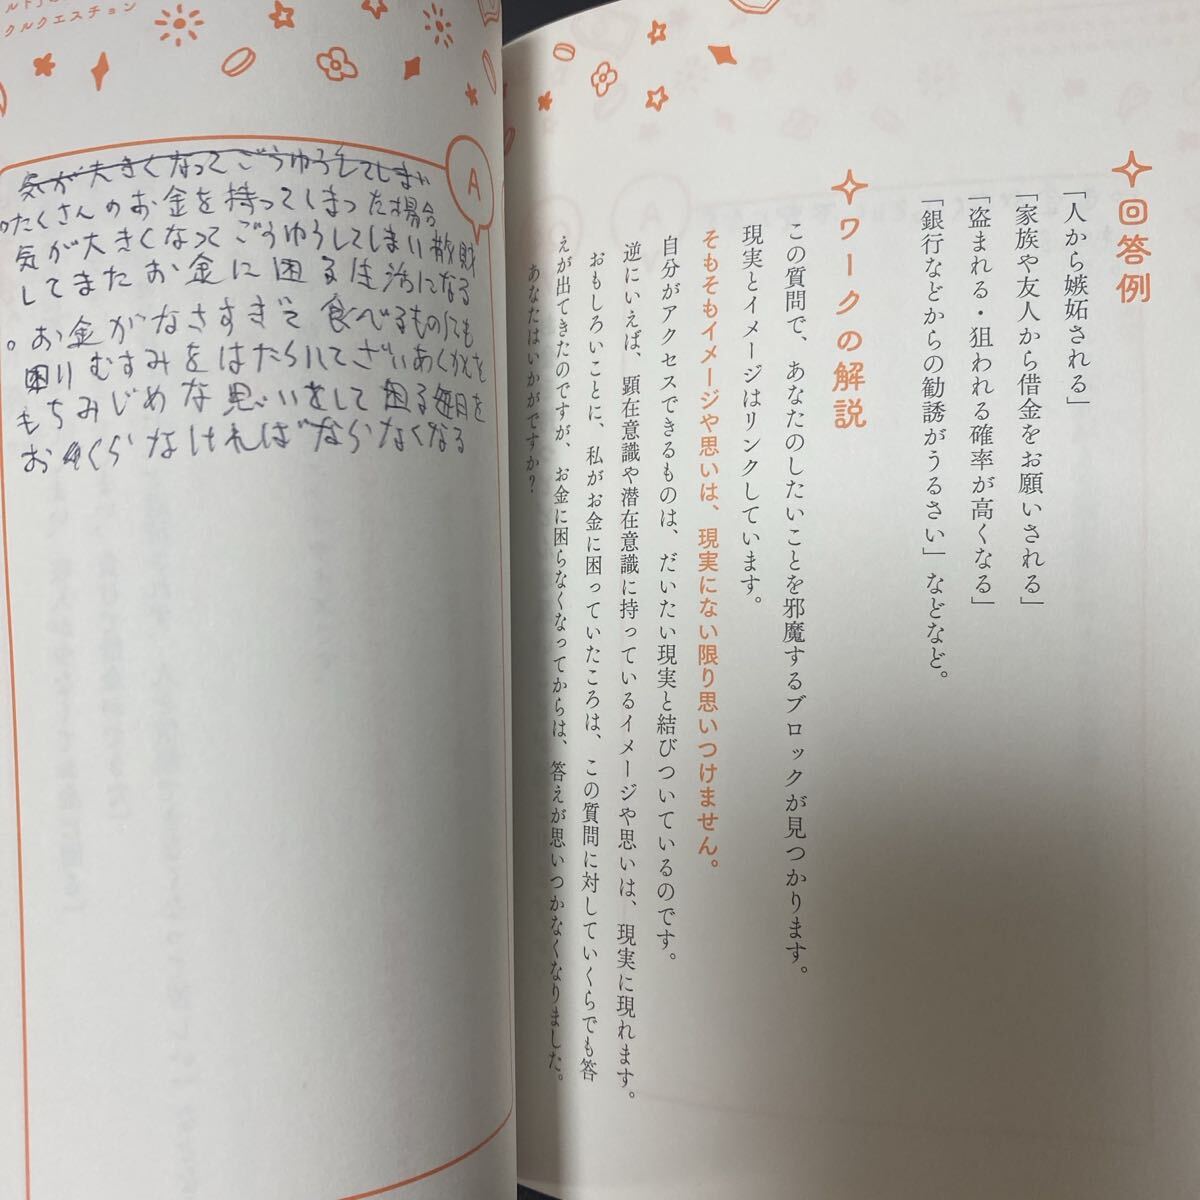 回答例
「人から嫉妬される」
「家族や友人から借金をお願いされる」
「盗まれる・狙われる確率が高くなる」
「銀行などからの勧誘がうるさい」などなど。
ワークの解説
この質問で、あなたのしたいことを邪魔するブロックが見つかります。
現実とイメージはリンクしています。
そもそもイメージや思いは、現実にない限り思いつけません。
自分がアクセスできるものは、だいたい現実と結びついているのです。
逆にいえば、顕在意識や潜在意識に持っているイメージや思いは、現実に現れます。
おもしろいことに、私がお金に困っていたころは、この質問に対していくらでも答
えが出てきたのですが、お金に困らなくなってからは、答えが思いつかなくなりました。
あなたはいかがですか?
クルクエスチョン
A
気が大きくなってごうゆうをしてしまい
たくさんのお金を持ってしまった場合
気が大きくなってごうゆうしてしまい散財
してまたお金に困る生活になる
。お金がなさすぎて食べるものにも
困りむすみをはたらいてざいあくかんを
もちみじめな思いをして困る毎日を
おくらなければならなくなる